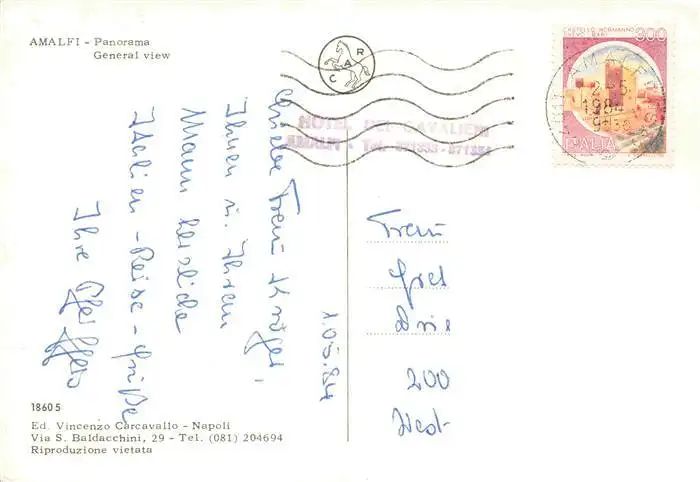 AMALFI - Panorama
General view
CARC
HOTEL DEI CAVALIERI
AMALFI - Tel.
CASTELLO NORMANNO
300
AMALFI
2-5
1984
ITALIA
Liebe Frau Krüger,
Ihnen u. Ihrem
Mann herzliche
Italien-Reise-Grüße
Ihre
1.05.84
Frau
Gret
200
18605
Ed. Vincenzo Carcavallo - Napoli
Via S. Baldacchini, 29 - Tel. (081) 204694
Riproduzione vietata